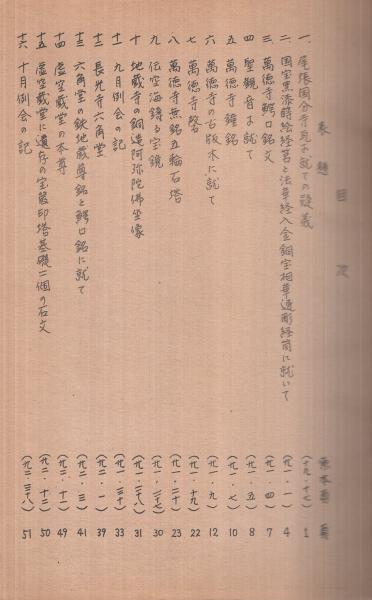 目次
表題
一 尾張国分寺
二 国宝黒漆蒔絵経筥と法華経入金銅宝相華透彫経筒に就いて (九一・一) 4
三 萬徳寺鰐口銘文 (九一・四) 7
四 聖観音に就て (九一・五) 8
五 萬徳寺鐘銘 (九一・七) 10
六 萬徳寺の古版木に就て (九一・九) 12
七 萬徳寺磬 (九一・一九) 22
八 萬徳寺無銘五輪石塔 (九一・二十) 23
九 伝空海鋳る宝鏡 (九一・二七) 30
十 地蔵寺の銅造阿弥陀佛坐像 (九一・二八) 31
十一 九月例会の記 (九一・三十) 33
十二 長光寺六角堂 (九二・一) 39
十三 六角堂の鉄地蔵尊銘と鰐口銘に就て (九二・三) 41
十四 虚空蔵堂の本尊 (九二・十一) 49
十五 虚空蔵堂に遺存の宝篋印塔基礎二個の石文 (九二・十二) 50
十六 十月例会の記 (九二・二八) 51